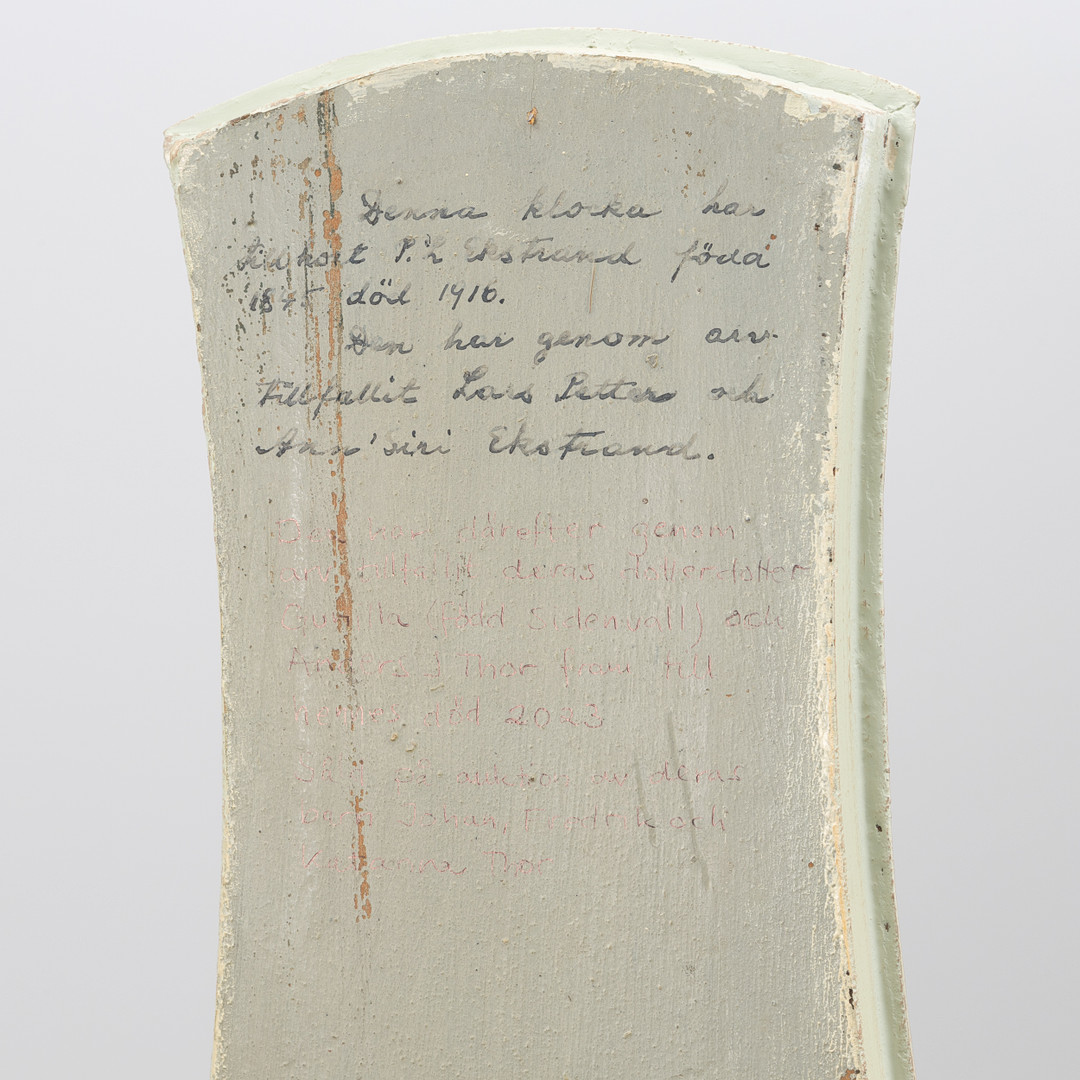 Denna klocka har
tillhört P. L Ekstrand född
1845 död 1916.
Den har genom arv
tillfallit Lars Petter och
Ann'Siri Ekstrand.
Den har därefter genom
arv tillfallit deras dotterdotter
Gunilla (född Sidenvall) och
Anders J Thor fram till
hennes död 2023
Såld på auktion av deras
barn Johan, Fredrik och
Katarina Thor